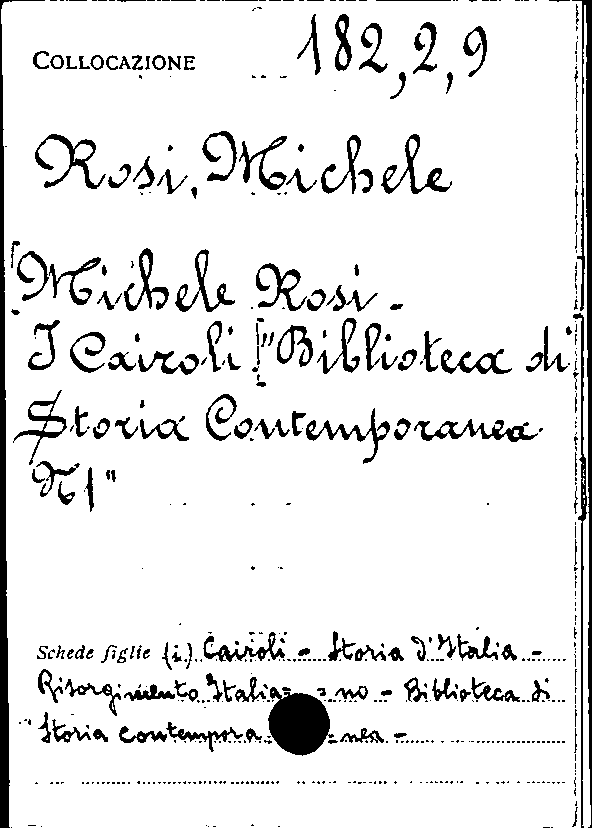 COLLOCAZIONE 182,2,9
Rosi, Michele
[Michele Rosi -
I Cairoli ["Biblioteca di
Storia Contemporanea
N1"
Schede figlie (i) Cairoli - Storia d'Italia -
Risorgimento Italia= =no - Biblioteca di
Storia contempora= =nea -